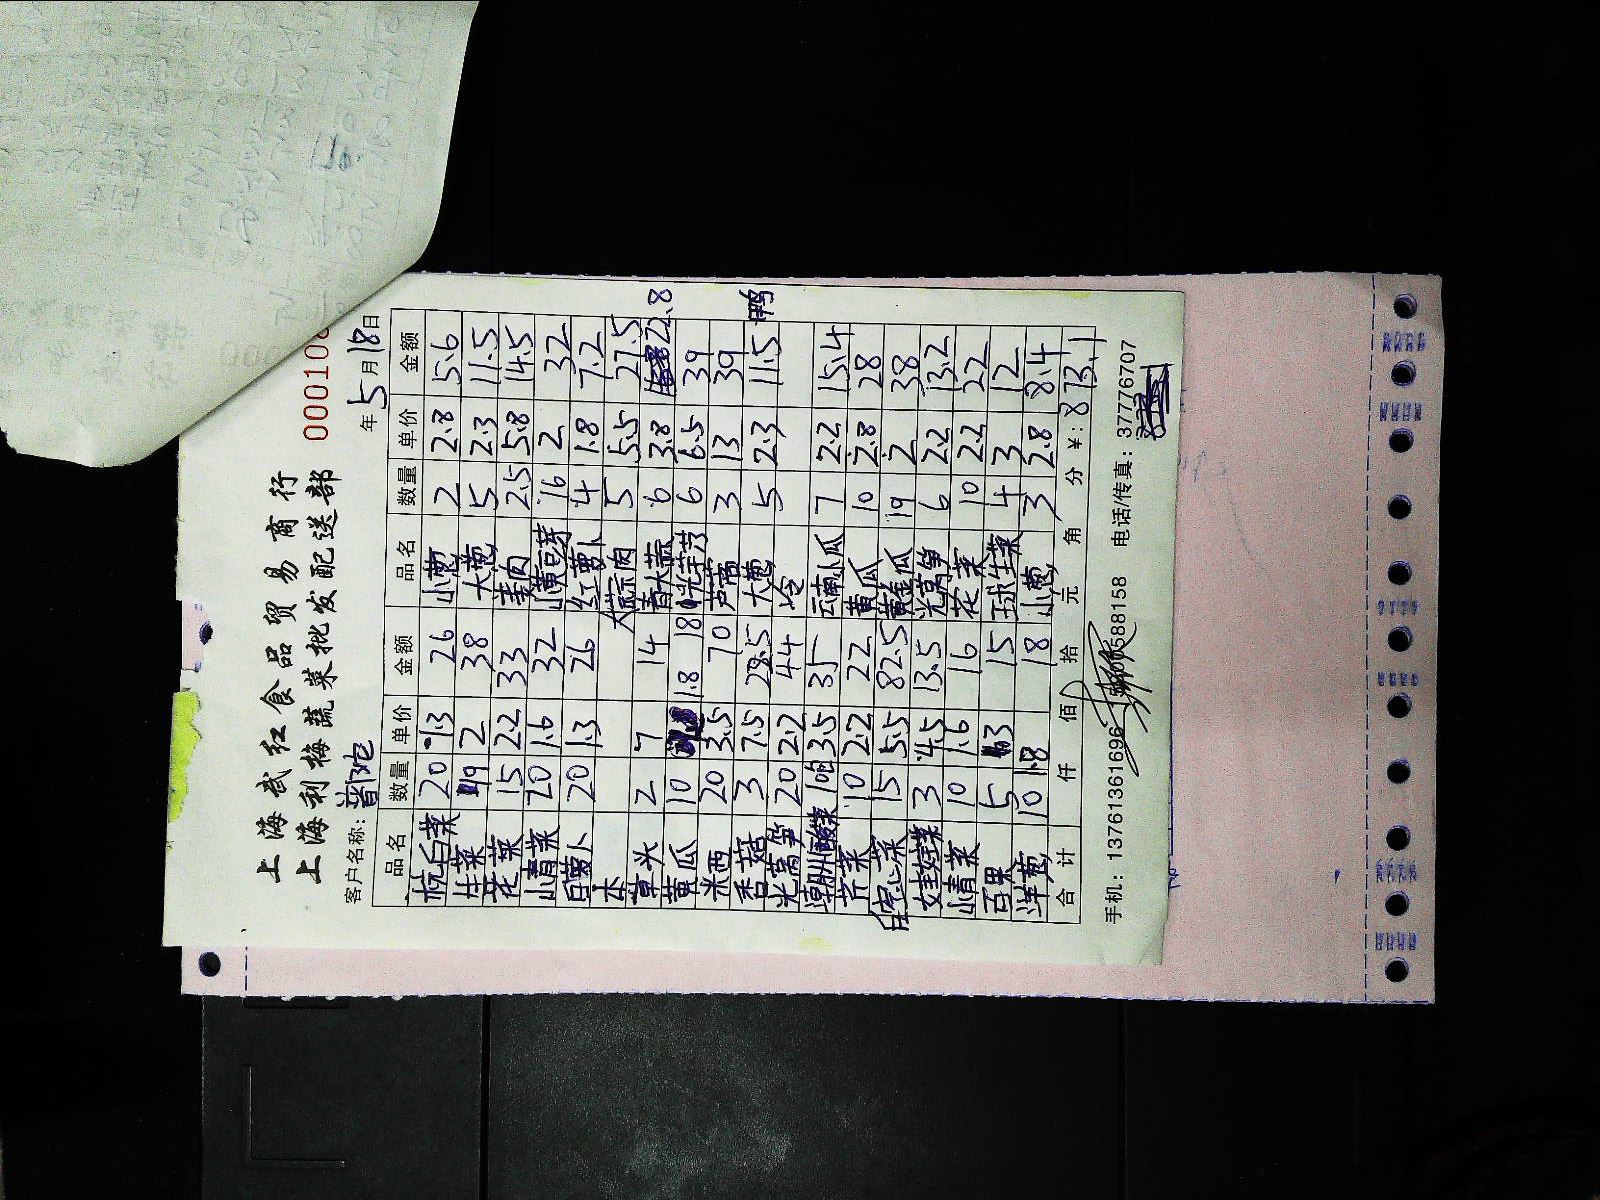 上海武红食品贸易商行
上海利梅蔬菜批发配送部
000108
客户名称：普陀 年 5 月 18 日
品名 数量 单价 金额 品名 数量 单价 金额
杭白菜 20 1.3 26 小葱 2 2.8 5.6
生菜 19 2 38 大葱 5 2.3 11.5
花菜 15 2.2 33 姜肉 2.5 5.8 14.5
小青菜 20 1.6 32 小黄豆芽 16 2 32
白萝卜 20 1.3 26 红萝卜 4 1.8 7.2
本 大蒜肉 5 5.5 27.5
草头 2 7 14 青大蒜 6 3.8 22.8
黄瓜 10 1.8 18 光芋艿 6 6.5 39
米西 20 3.5 70 芦蒿 3 13 39
香菇 3 7.5 大葱 5 2.3 11.5 鸭
光莴笋 20 2.2 44 冷
潮州酸菜 10包 3.5 35 云南小瓜 7 2.2 15.4
芹菜 10 2.2 22 黄瓜 10 2.8 28
空心菜 15 5.5 82.5 黄金瓜 19 2 38
娃娃菜 3 4.5 13.5 光莴笋 6 2.2 13.2
小青菜 10 1.6 16 花菜 10 2.2 22
百果 5 3 15 球生菜 4 3 12
洋葱 10 1.8 18 小葱 3 2.8 8.4
合计 仟 佰 拾 元 角 分 ￥：873.1
手机：13761361696 588158 电话/传真：37776707